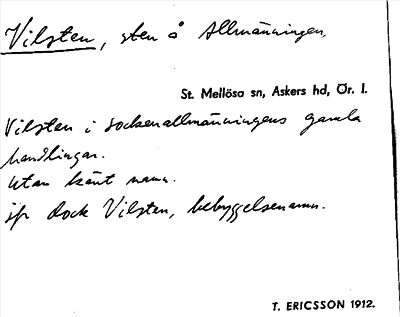 Vilsten, sten å Allmänningen,
St. Mellösa sn, Askers hd, Ör. l.
Vilsten i sockenallmänningens gamla
handlingar.
Utan känt namn.
jfr dock Vilsten, bebyggelsenamn.
T. ERICSSON 1912.